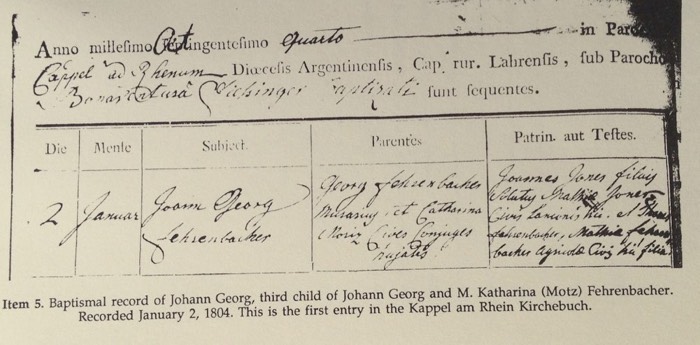 Anno millesimo Octingentesimo Quarto in Paro
Cappel ad Rhenum Diœcesis Argentinensis, Cap. rur. Lahrensis, sub Parocho
Bonaventura Baptizati sunt sequentes.
Die Mense Subject. Parentes Patrin. aut Testes.
2 Januar Joann Georg Fehrenbacher
Georg Fehrenbacher
Murarius et Catharina
Cives Conjuges
Joannes Jones filius
Solutus Mathia Jones
Civis Lanionis hic. et
Fehrenbacher, Mathia Fehren
bacher agricolæ Civis hic filia
Item 5. Baptismal record of Johann Georg, third child of Johann Georg and M. Katharina (Motz) Fehrenbacher.
Recorded January 2, 1804. This is the first entry in the Kappel am Rhein Kirchebuch.